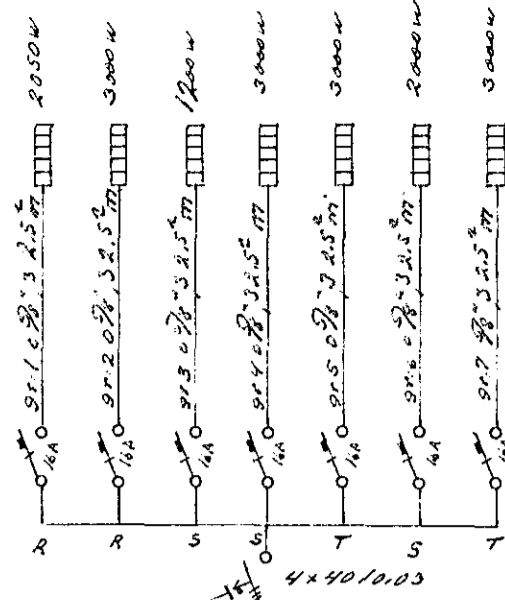 2050w
3000w
1200w
3000w
3000w
2000w
3000w
gr.1 0 5/8" 3 2.5² m
gr.2 0 5/8" 3 2.5² m
gr3 0 5/8" 3 2.5² m
gr4 0 5/8" 3 2.5² m
gr5 0 5/8" 3 2.5² m
gr.6 0 5/8" 3 2.5² m
gr.7 5/8" 3 2.5² m
16A
16A
16A
16A
16A
16A
16A
R
R
S
S
T
S
T
4x40/0.03